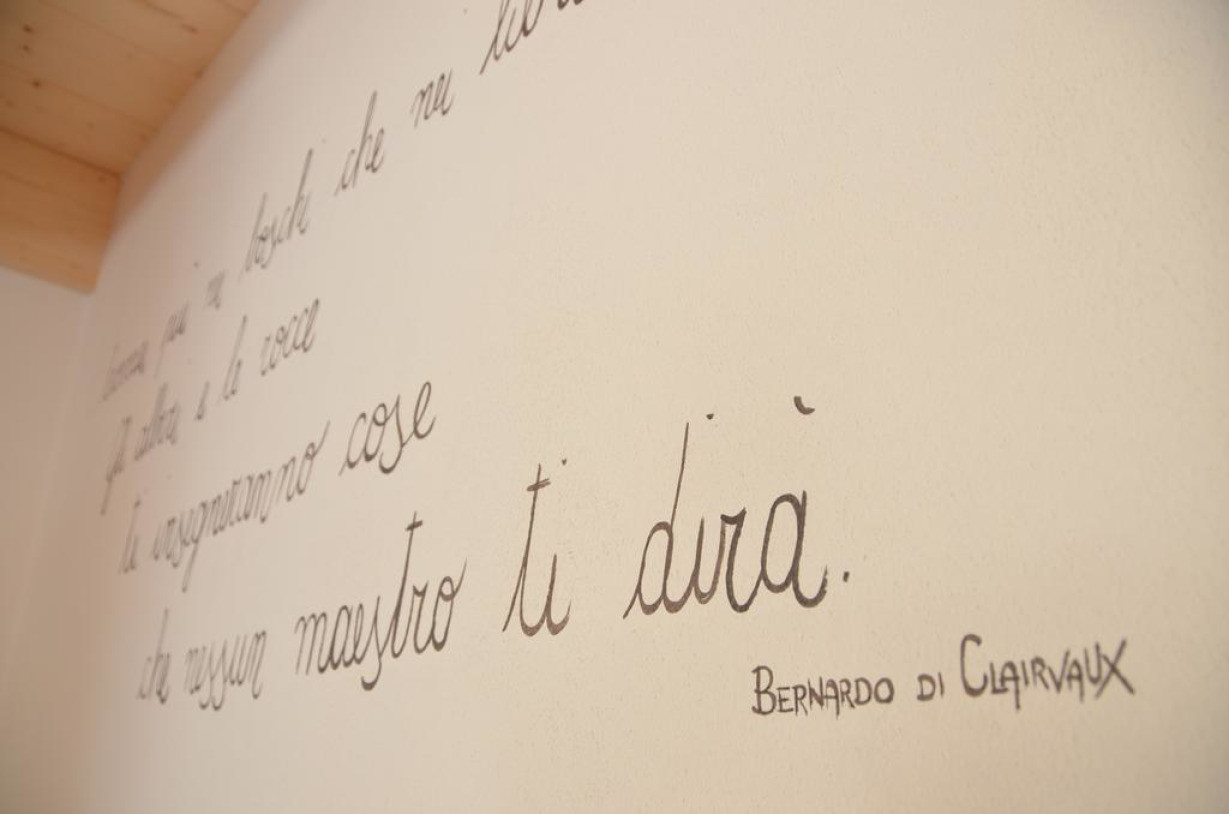 più nei boschi che nei libri
Gli alberi e le rocce
ti insegneranno cose
che nessun maestro ti dirà.
BERNARDO DI CLAIRVAUX